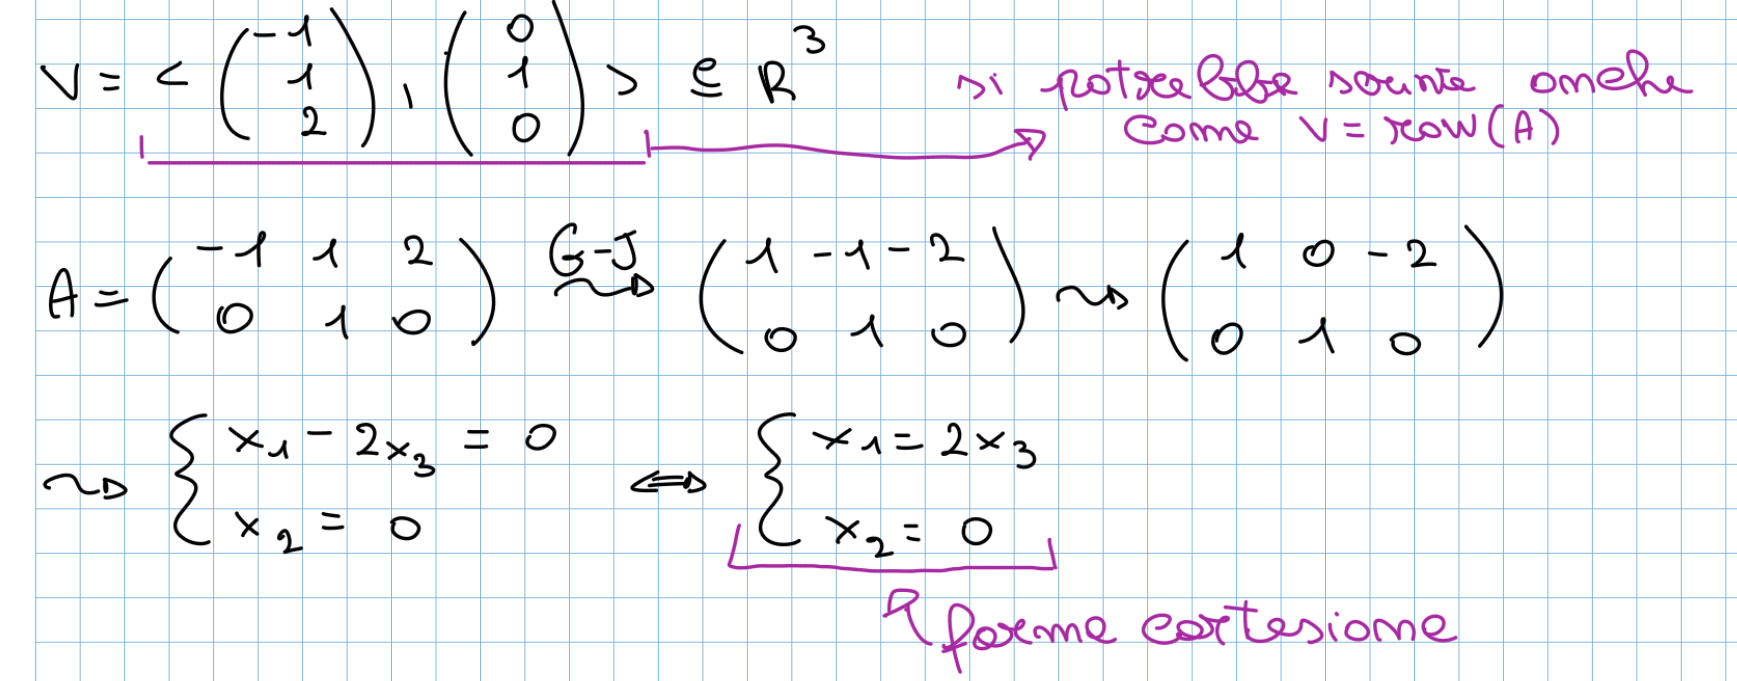 V = < (-1 1 2), (0 1 0) > ⊆ R³ si potrebbe scrivere anche
come V = row(A)
A = (-1 1 2 / 0 1 0) G-J ⇝ (1 -1 -2 / 0 1 0) ⇝ (1 0 -2 / 0 1 0)
⇝ { x₁ - 2x₃ = 0 ⟺ { x₁ = 2x₃
x₂ = 0 x₂ = 0
forma cartesiana